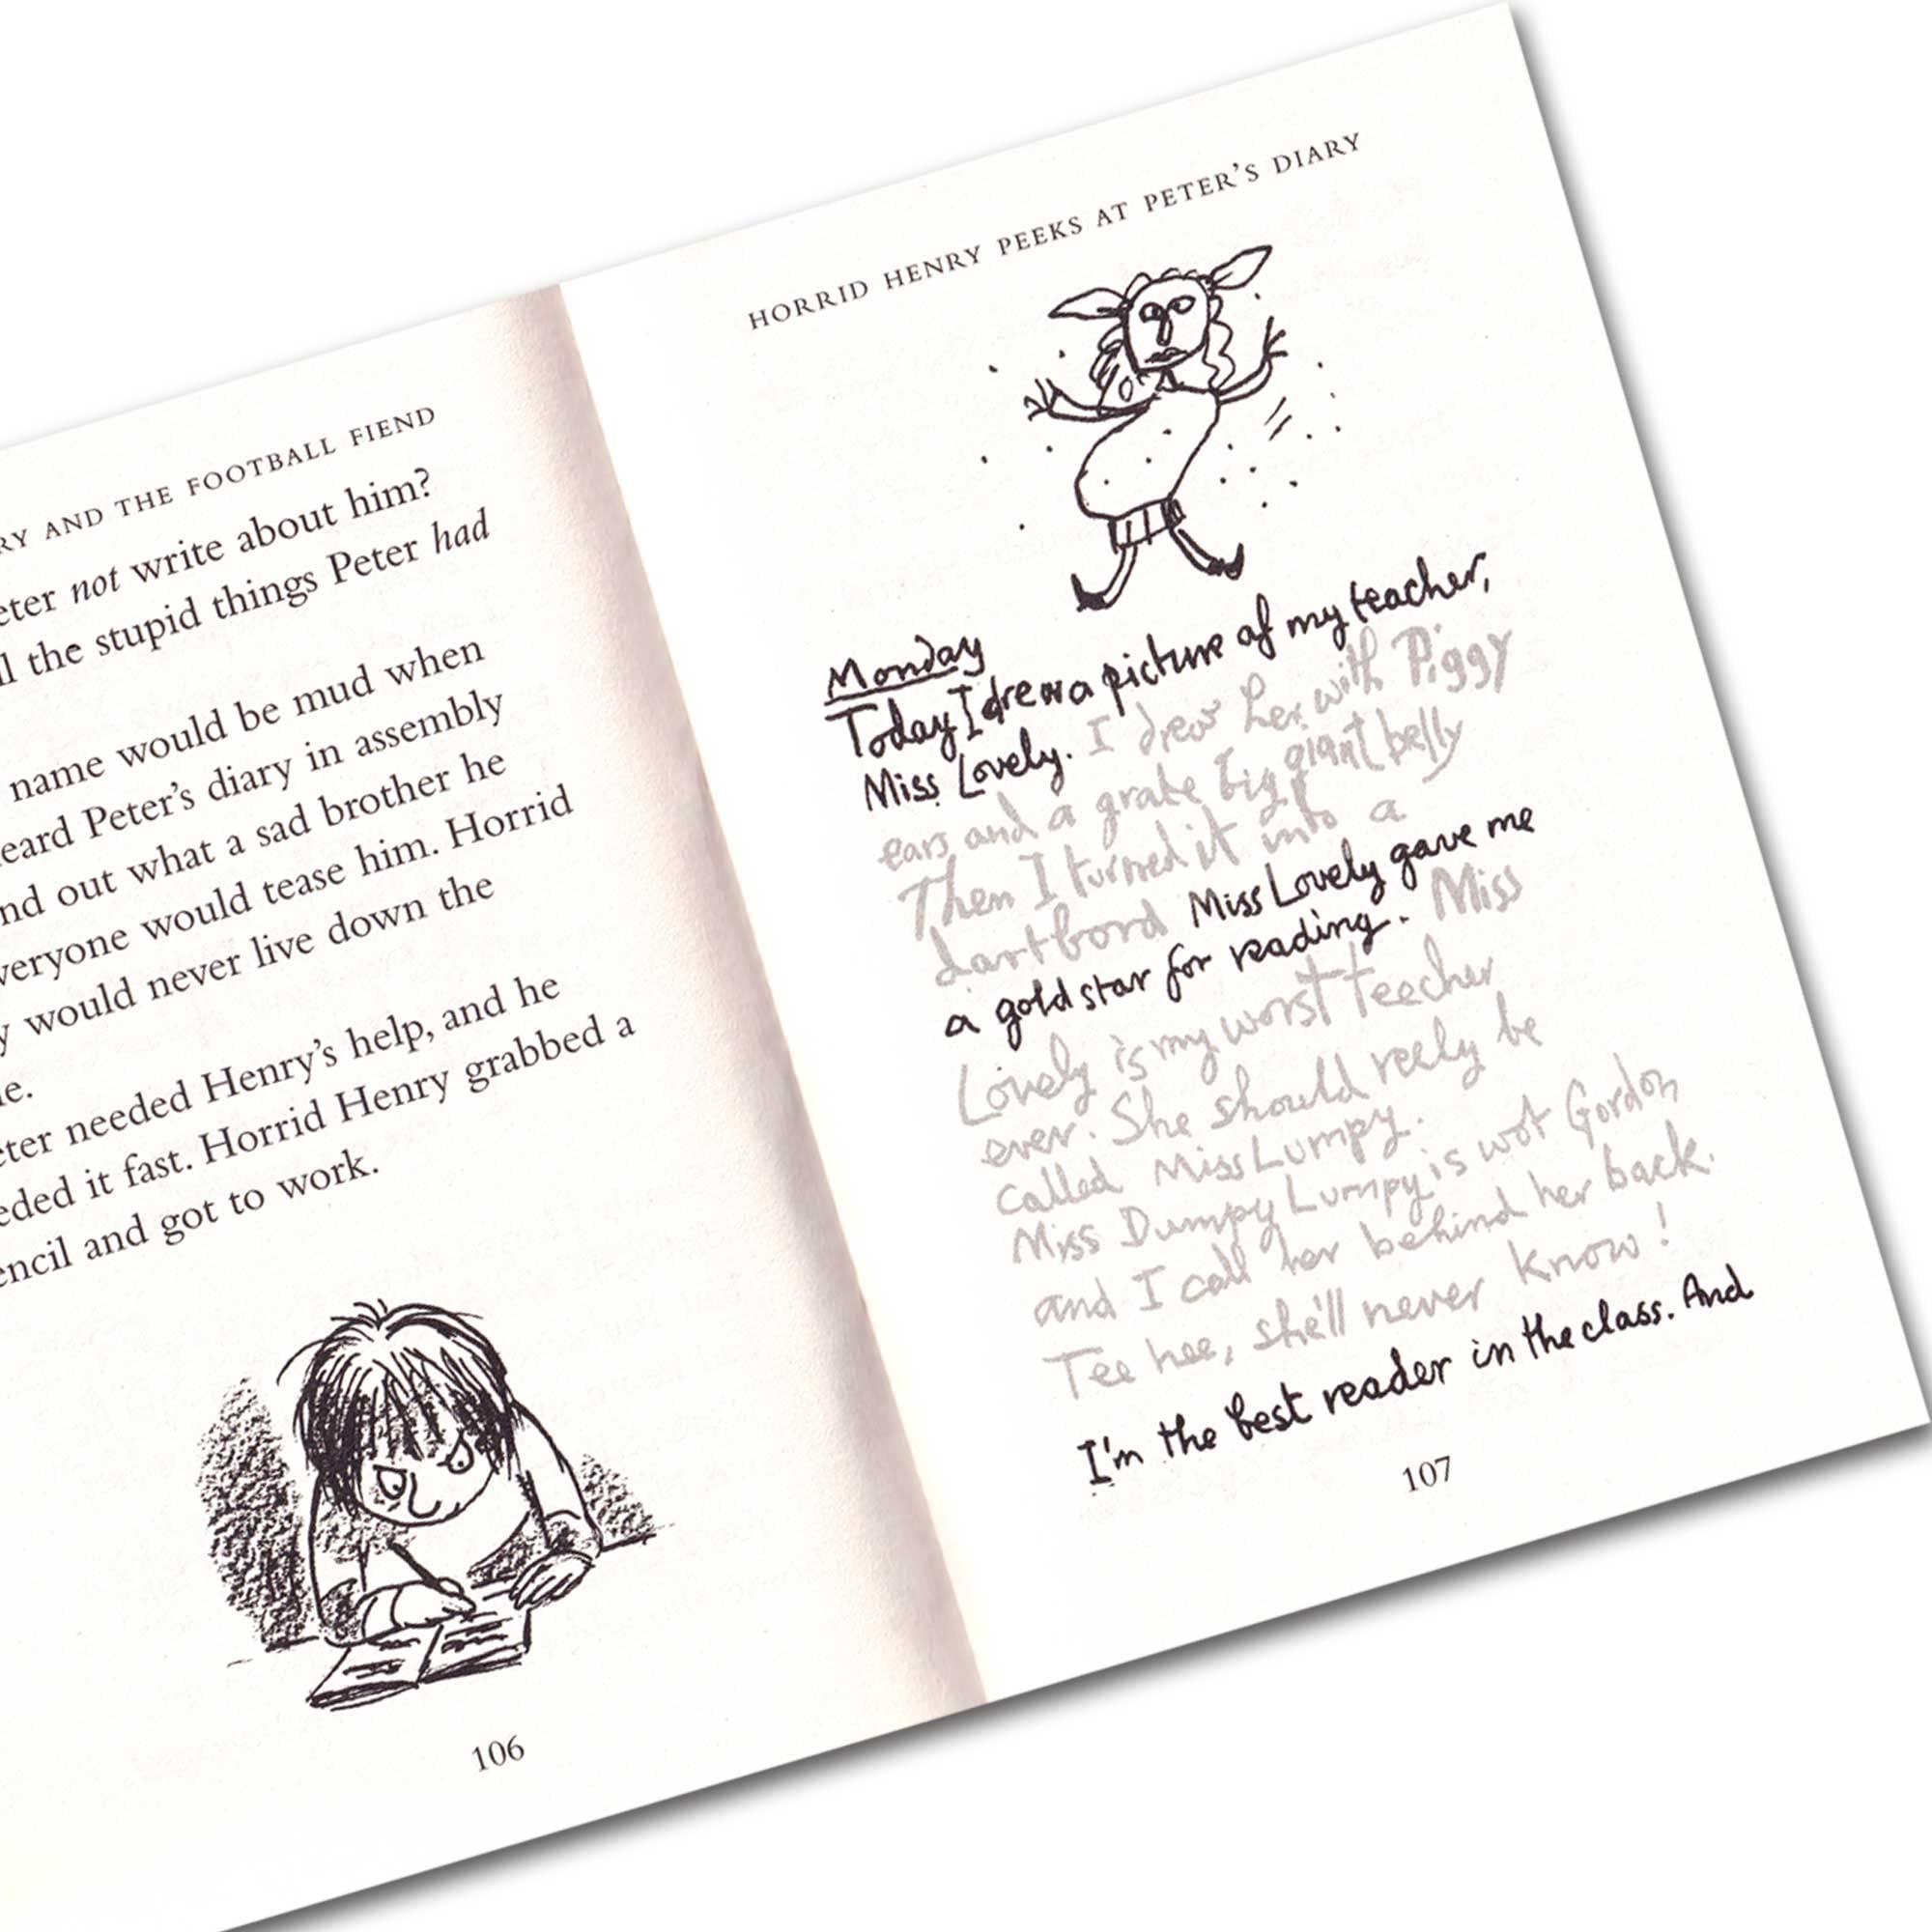 RY AND THE FOOTBALL FIEND
eter not write about him?
ll the stupid things Peter had
name would be mud when
eard Peter's diary in assembly
nd out what a sad brother he
veryone would tease him. Horrid
y would never live down the
e.
eter needed Henry's help, and he
eded it fast. Horrid Henry grabbed a
encil and got to work.
106
HORRID HENRY PEEKS AT PETER'S DIARY
Monday
Today I drew a picture of my teacher,
Miss Lovely. I drew her with Piggy
ears and a grate big giant belly
Then I turned it into a
dartbord Miss Lovely gave me
a gold star for reading. Miss
Lovely is my worst teecher
ever. She should reely be
called Miss Lumpy.
Miss Dumpy Lumpy is wot Gordon
and I call her behind her back.
Tee hee, she'll never know!
I'm the best reader in the class. And
107